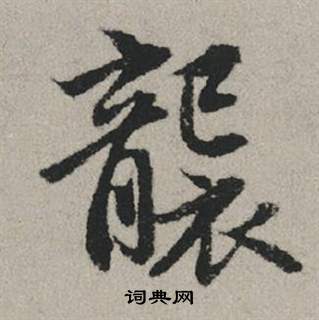 襲
词典网